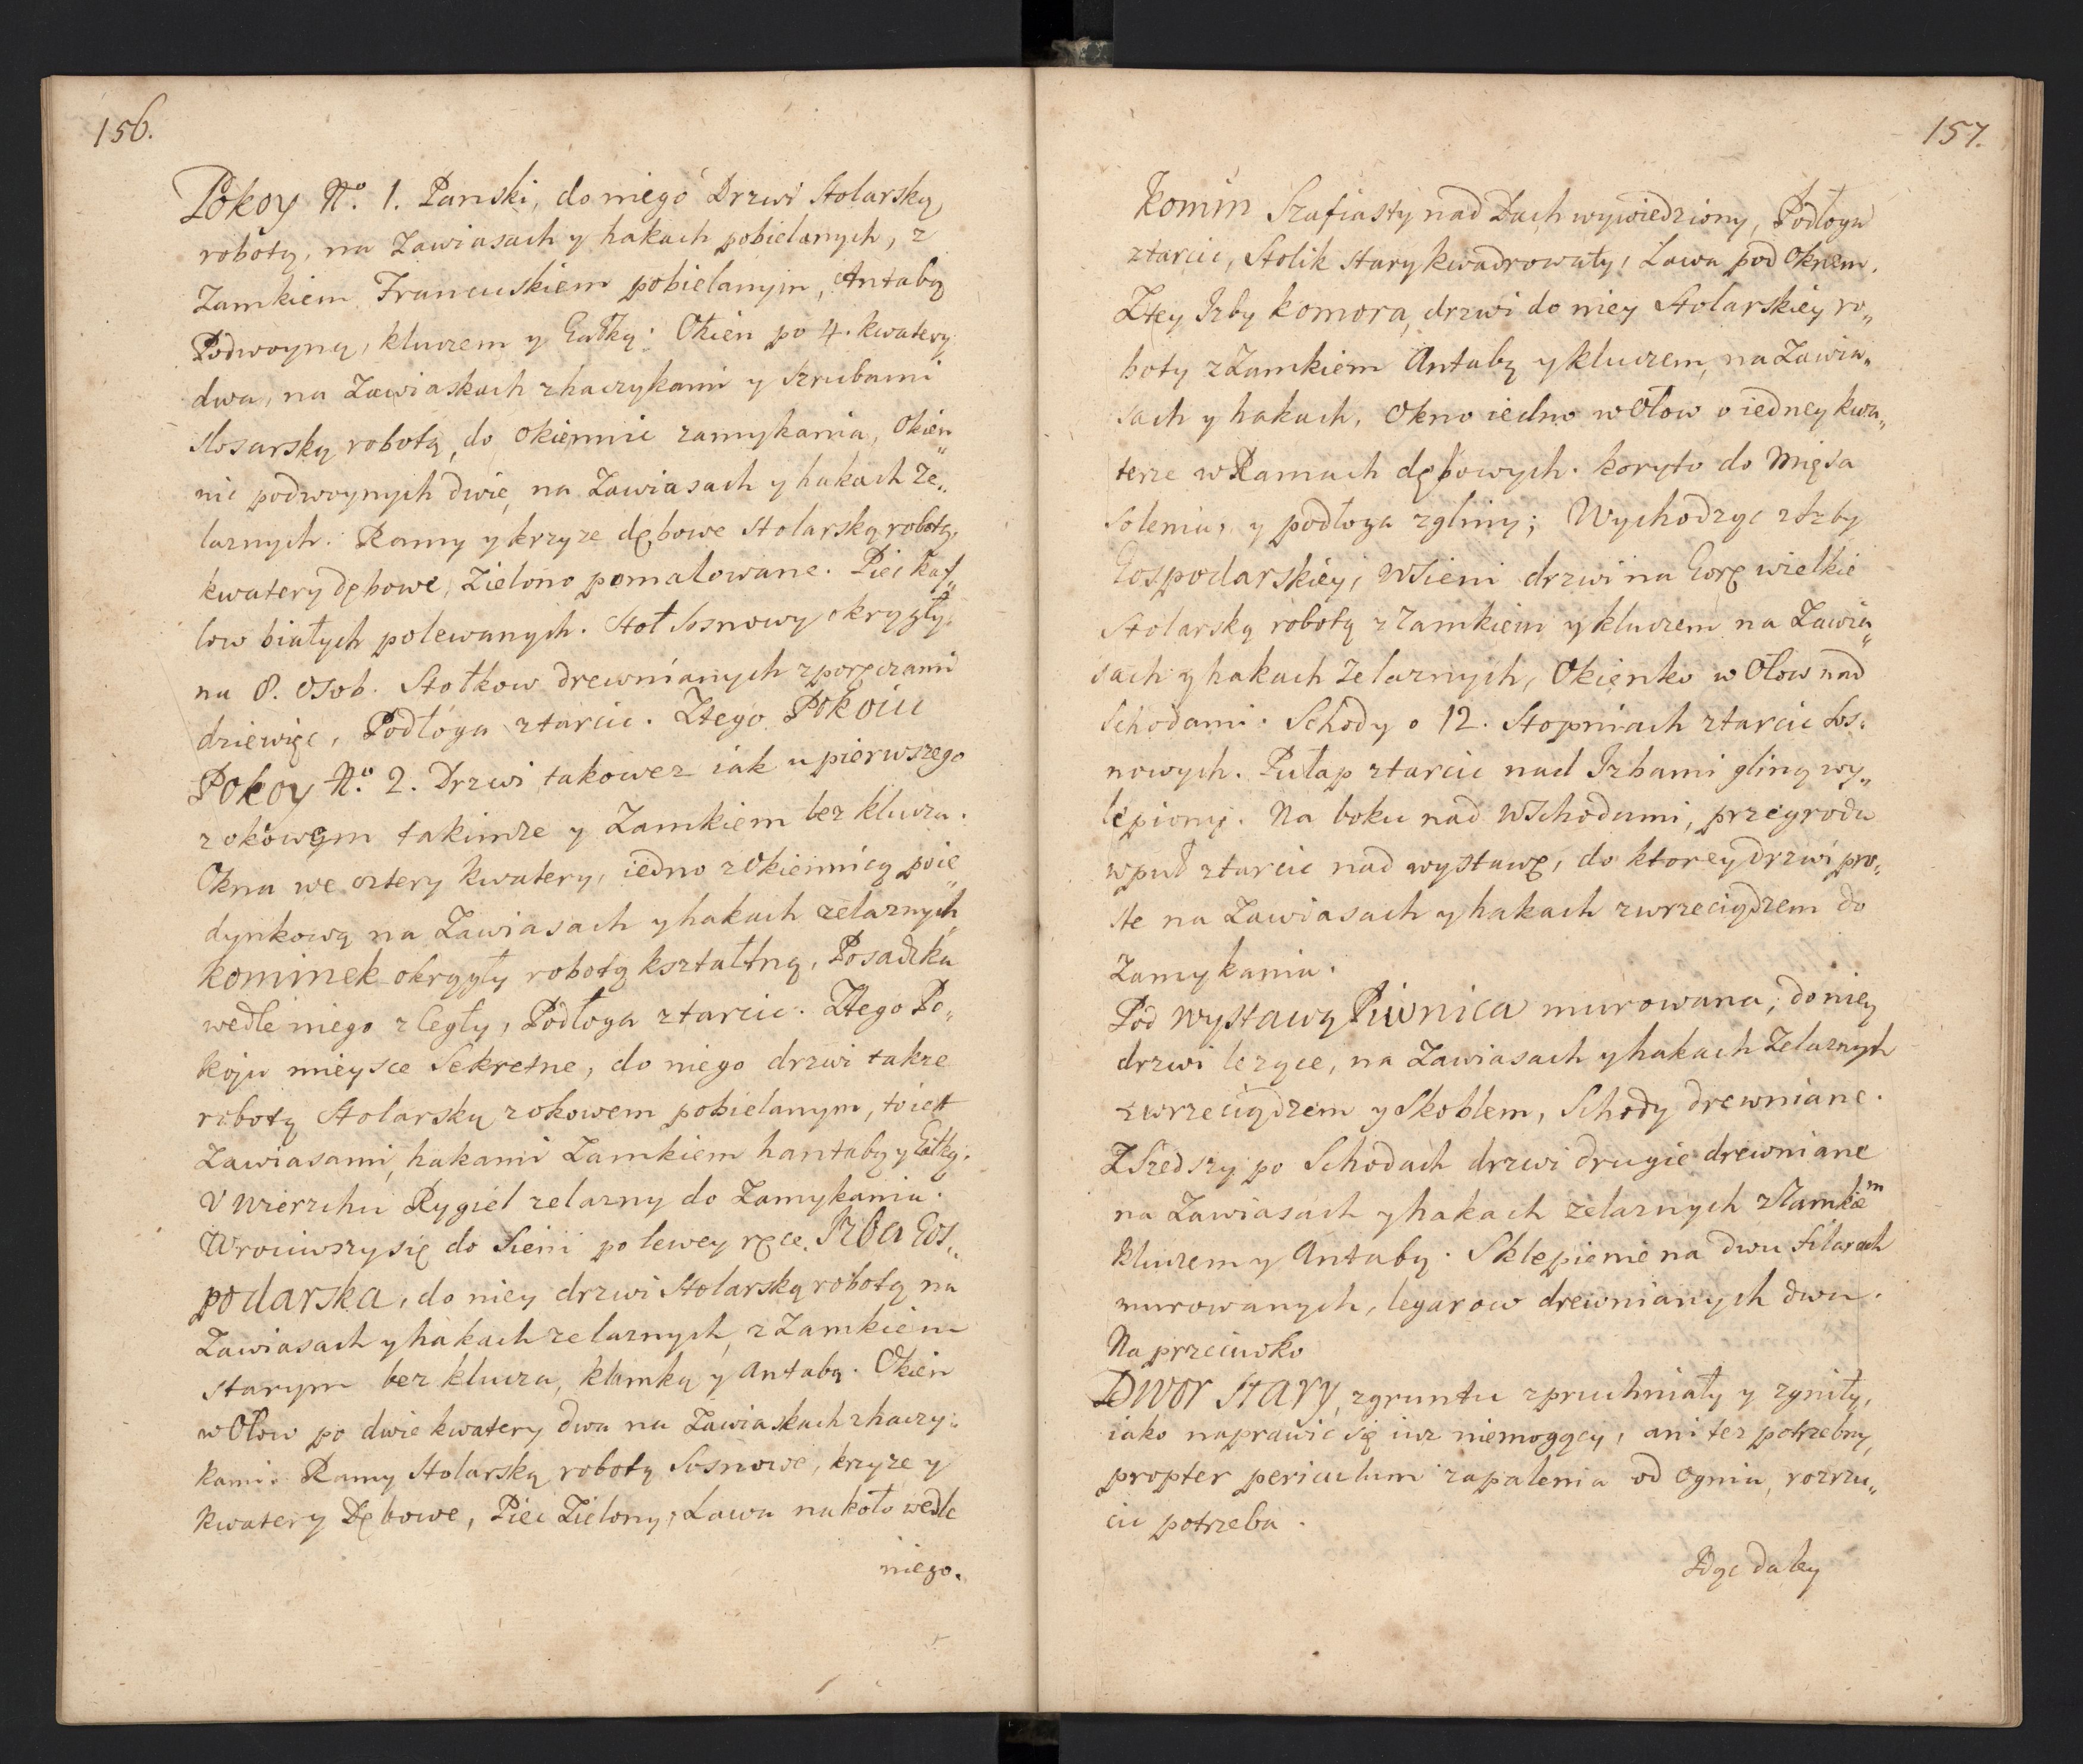 156.
Pokoy No. 1. Panski, do niego Drzwi Stolarską
roboty, na Zawiasach y hakach pobielanych, z
Zamkiem Francuskiem pobielanym, Antabą
Podwoyną, kluczem y Gałką: Okien po 4. kwatery
dwa, na Zawiaskach z haczykami y szrubami
slosarską robotą, do okiennic zamykania, Okien„
nic podwoynych dwie, na Zawiasach y hakach Że„
laznych. Ramy y krzyze dębowe Stolarską robotą,
kwatery dębowe, Zielono pomalowane. Piec kaf„
low białych polewanych. Stoł Sosnowy okrągły,
na 8. osob. Stołkow drewnianych z poręczami
dziewięc, Podłoga z tarcic. Z tego Pokoiu
Pokoy No. 2. Drzwi takowez iak u pierwszego
z okowem takimze y Zamkiem bez klucza.
Okna we cztery kwatery, iedno z Okiennicą poie„
dynkową na Zawiasach y hakach zelaznych,
kominek okrągły robotą kształtną, Posadzka
wedle niego z Cegły, Podłoga z tarcic. Z tego Po„
koju mieysce Sekretne, do niego drzwi takze
robotą Stolarską z okowem pobielanym, to iest
Zawiasami, hakami Zamkiem hantabą y Gałką.
U Wierzchu Rygiel zelazny do Zamykania.
Wrociwszy się do Sieni po lewey ręce, Izba Gos„
podarska, do niey drzwi Stolarską robotą na
Zawiasach y hakach zelaznych, z Zamkiem
starym bez klucza, klamką y Antabą. Okien
w Ołow po dwie kwatery dwa na Zawiaskach z haczy„
kami. Ramy Stolarską robotą Sosnowe, krzyze y
kwatery Dębowe, Piec Zielony, Ława nakoło wedle
niego.
157.
Komin Szafiasty nad Dach wywiedziony, Podłoga
z tarcic, Stolik stary kwadrowaty, Ława pod Oknem.
Z tey Izby komora, drzwi do niey Stolarskiey ro„
boty z Zamkiem Antabą y kluczem, na Zawia„
sach y hakach, Okno iedno w Ołow o iedney kwa„
terze w Ramach dębowych. koryto do Mięsa
Solenia, y podłoga z gliny; Wychodząc z Izby
Gospodarskiey, w Sieni drzwi na Gorę wielkie
Stolarską robotą z Zamkiem y kluczem na Zawia„
sach y hakach Zelaznych, Okienko w Ołow nad
Schodami. Schody o 12. Stopniach z tarcic Sos„
nowych. Pułap z tarcic nad Izbami gliną wy„
lepiony. Na boku nad Wschodami, przegroda
w puł z tarcic nad wystawę, do ktorey drzwi pro„
ste na Zawiasach y hakach z wrzeciądzem do
Zamykania.
Pod Wystawą Piwnica murowana, do niey
drzwi lezące, na Zawiasach y hakach Zelaznych
z wrzeciądzem y Skoblem, Schody drewniane.
Zszedszy po Schodach drzwi drugie drewniane
na Zawiasach y hakach zelaznych z Zamkiem
kluczem y Antabą. Sklepienie na dwu filarach
murowanych, legarow drewnianych dwu.
Naprzeciwko
Dwor Stary, z gruntu zpruchniały y zgniły,
iako naprawic się iuz niemogący, ani tez potrzebny,
propter periculum zapalenia od Ognia, rozrzu„
cic potrzeba.
Idąc daley